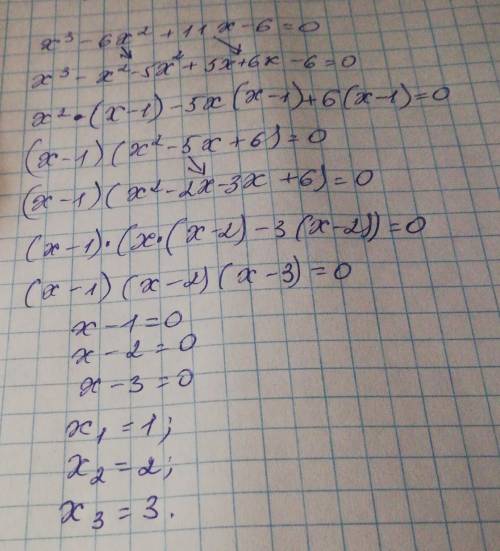 x³ - 6x² + 11x - 6 = 0
x³ - x² - 5x² + 5x + 6x - 6 = 0
x² • (x - 1) - 5x (x - 1) + 6 (x - 1) = 0
(x - 1) (x² - 5x + 6) = 0
(x - 1) (x² - 2x - 3x + 6) = 0
(x - 1) • (x • (x - 2) - 3 (x - 2)) = 0
(x - 1) (x - 2) (x - 3) = 0
x - 1 = 0
x - 2 = 0
x - 3 = 0
x₁ = 1;
x₂ = 2;
x₃ = 3.